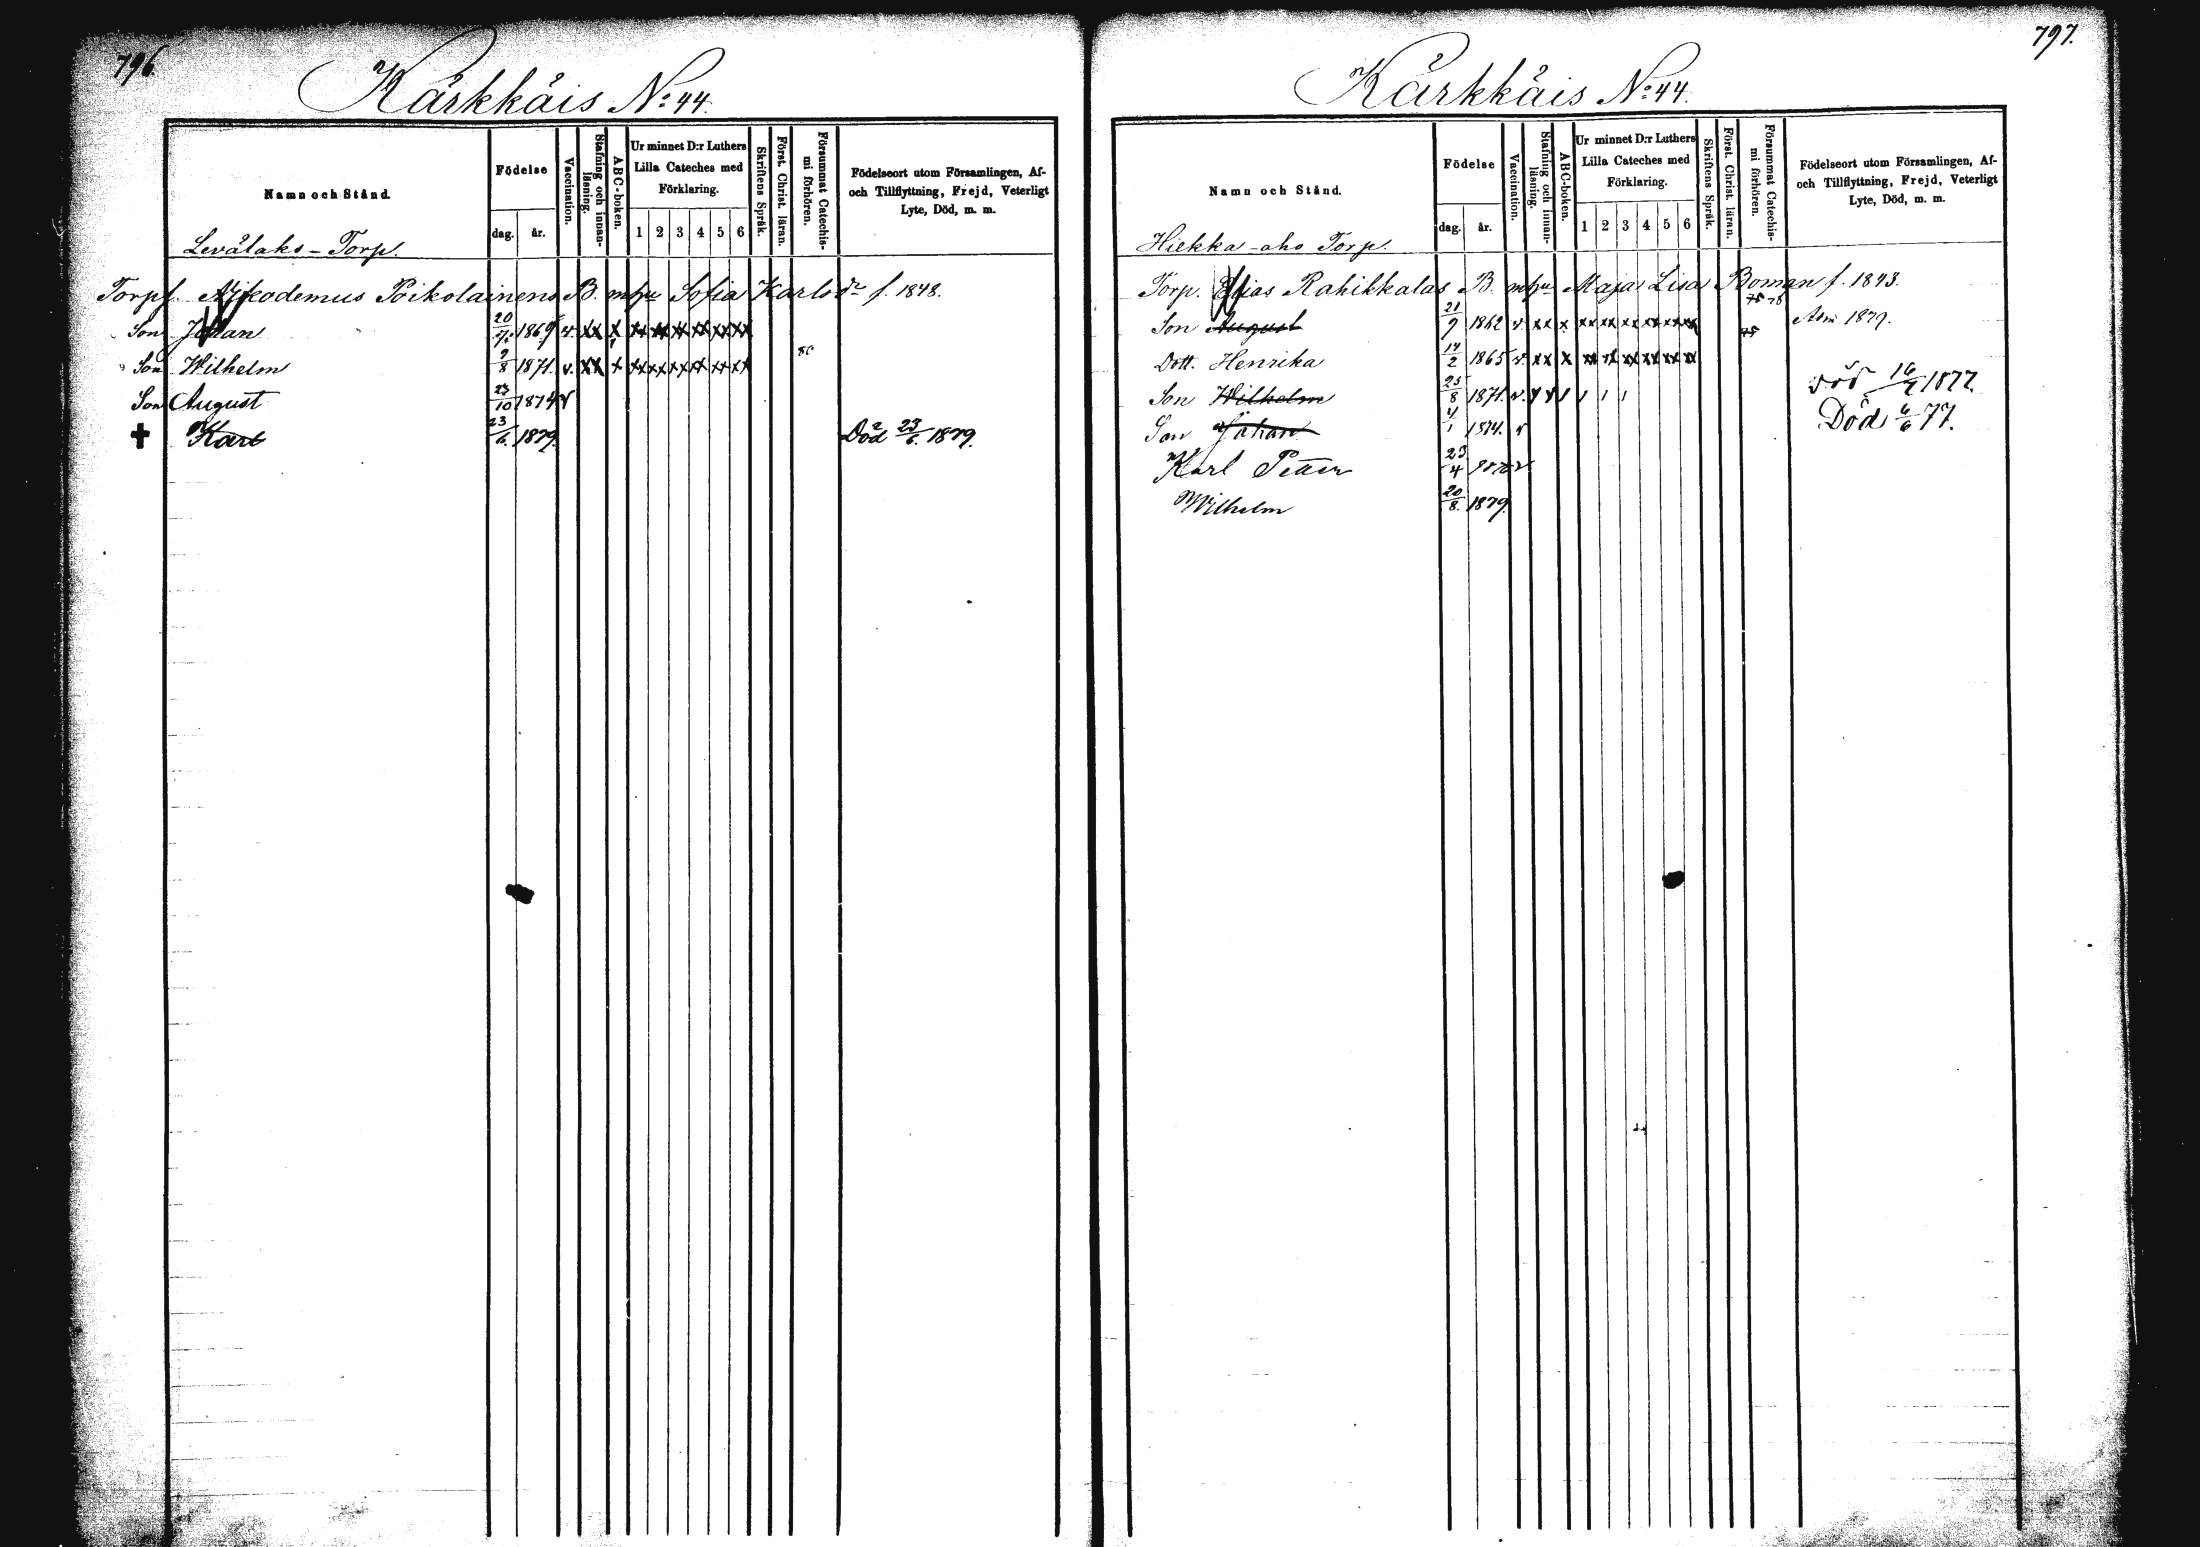 796.
Kärkkäis No 44.
Namn och Stånd.
Födelse
dag.
år.
Vaccination.
Stafning och innanläsning.
ABC-boken.
Ur minnet D:r Luthers
Lilla Cateches med
Förklaring.
1 2 3 4 5 6
Skriftens Språk.
Först. Christ. läran.
Försummat Catechismi förhören.
Födelseort utom Församlingen, Af-
och Tillflyttning, Frejd, Veterligt
Lyte, Död, m. m.
Levälaks - Torp.
Torpf. Nikodemus Poikolainens B. m hu Sofia Karlsdr f. 1848.
Son Johan 1869 v. xx x xx xx xx xx xx xx
Son Wilhelm 9/8 1871. v. xx x xx xx xx xx xx xx 80
Son August 23/10 1874 v
Karl 23/6. 1879. Död 23/6. 1879.
797.
Kärkkäis No 44.
Namn och Stånd.
Födelse
dag.
år.
Vaccination.
Stafning och innanläsning.
ABC-boken.
Ur minnet D:r Luthers
Lilla Cateches med
Förklaring.
1 2 3 4 5 6
Skriftens Språk.
Först. Christ. läran.
Försummat Catechismi förhören.
Födelseort utom Församlingen, Af-
och Tillflyttning, Frejd, Veterligt
Lyte, Död, m. m.
Hiekka-aho Torp.
Torp. Elias Rahikkalas B. m hu Maja Lisa Boman f. 1843.
75 78
Son August 21/9 1862 v. xx x xx xx xx xx xx xx 75 1879.
Dott. Henrika 14/2 1865 v. xx x xx xx xx xx xx xx
Son Wilhelm 25/8 1871. v. död 16/7 1877.
Son Johan 4/1 1874. v Död 6/6 77.
Karl Petter 23/4
Wilhelm 20/8. 1879.